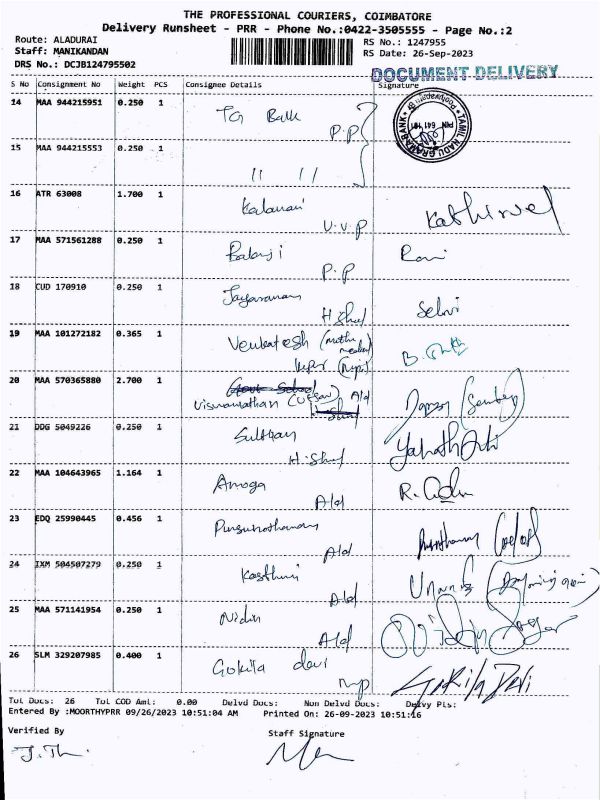 THE PROFESSIONAL COURIERS, COIMBATORE
Delivery Runsheet - PRR - Phone No.:0422-3505555 - Page No.:2
Route: ALADURAI
Staff: MANIKANDAN
DRS No.: DCJB124795502
RS No.: 1247955
RS Date: 26-Sep-2023
DOCUMENT DELIVERY
S No Consignment No Weight PCS Consignee Details Signature
14 MAA 944215951 0.250 1 P.P
TAMIL NADU GRAMA BANK
PIN 641 101
15 MAA 944215553 0.250 1 " "
16 ATR 63008 1.700 1 Kalamani V.V.P Kathirvel
17 MAA 571561288 0.250 1 Balaji P.P Rani
18 CUD 170910 0.250 1 Jayaraman Selvi
19 MAA 101272182 0.365 1 Venkatesh
20 MAA 570365880 2.700 1 Viswanathan Ald
21 DDG 5049226 0.250 1 Sulthan
22 MAA 104643965 1.164 1 Amoga Ald
23 EDQ 25990445 0.456 1 Purushothaman Ald
24 IXM 504507279 0.250 1 Kasthuri Ald
25 MAA 571141954 0.250 1 Nidin Ald
26 SLM 329207985 0.400 1 Gokila devi Gokila Devi
Tot Docs: 26 Tot COD Amt: 0.00 Delvd Docs: Non Delvd Docs: Delvy Pts:
Entered By :MOORTHYPRR 09/26/2023 10:51:04 AM Printed On: 26-09-2023 10:51:16
Verified By Staff Signature